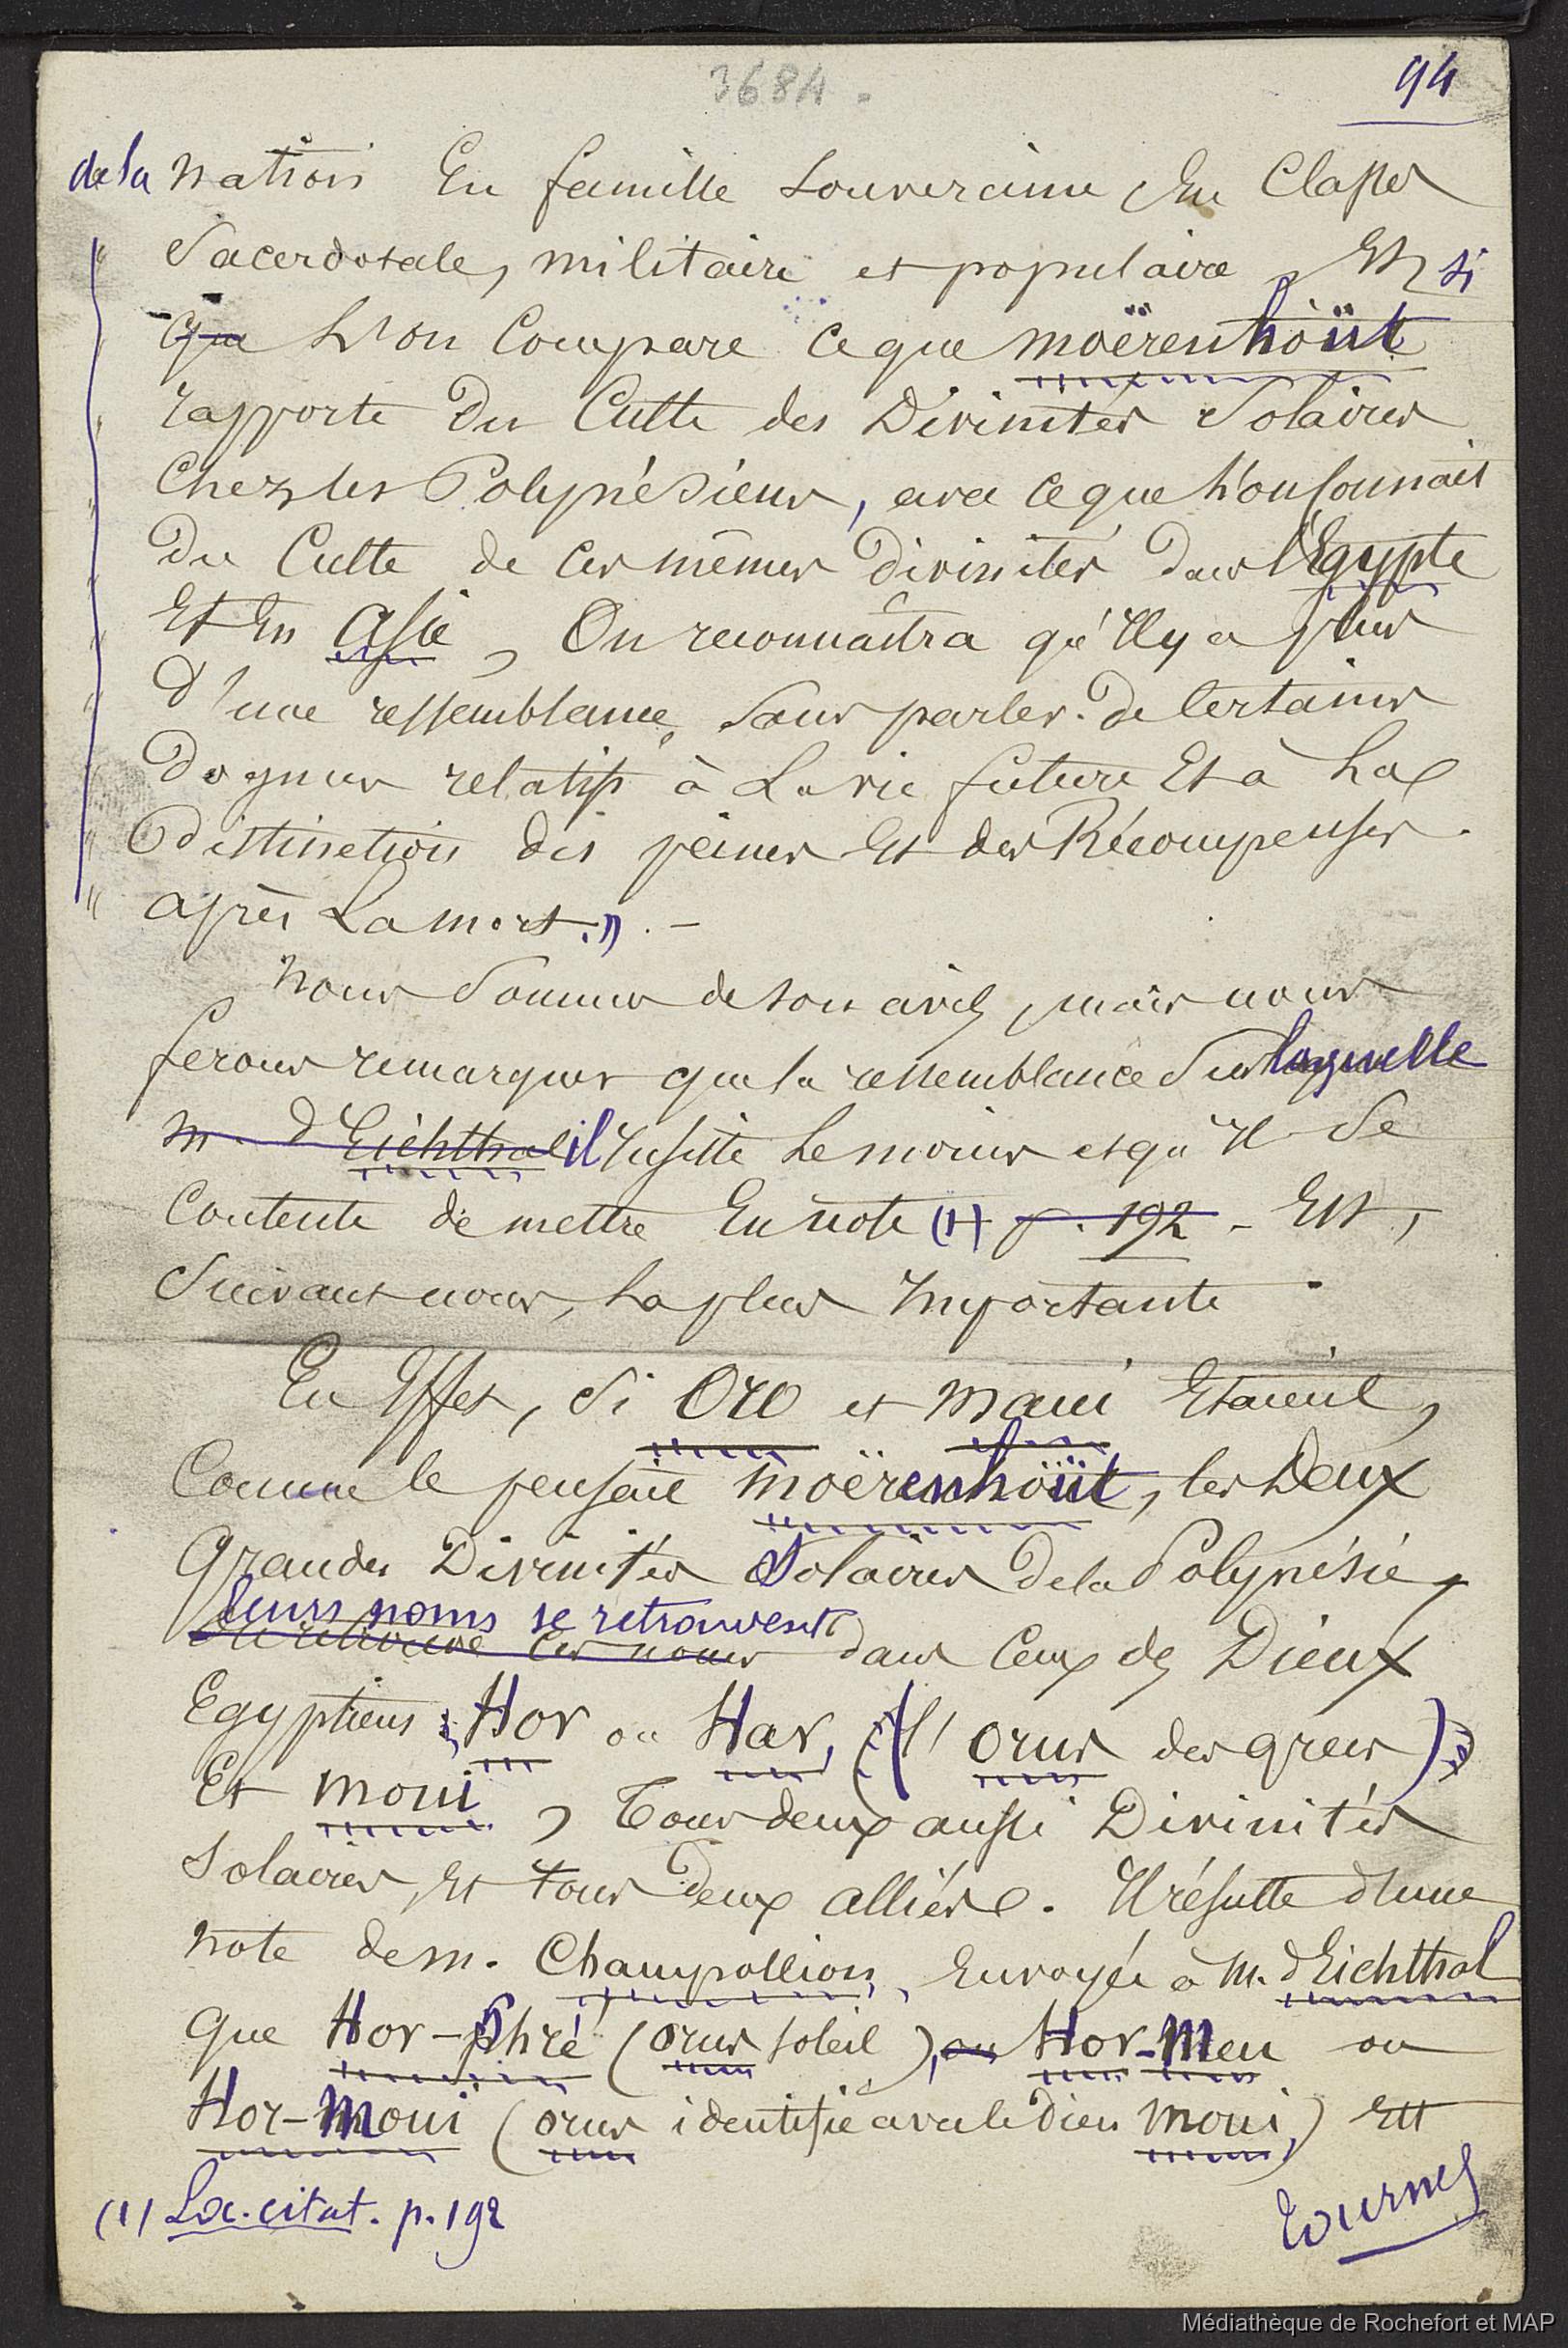 3684.
94
de la nation En famille Souveraine, En Classes
Sacerdotale, militaire et populaire, Et, si
que L'on Compare ce que moërenhoüt
rapporte Du Culte des Divinités Solaires
Chez les Polynésiens, avec ce que L'on Connait
Du Culte de Ces mêmes Divinités Dans l'Egypte
Et En Asie, On reconnaîtra qu'Il y a plus
d'une ressemblance, Sans parler De Certains
Dogmes relatifs à La vie future Et à La
Distinction des peines Et des Récompenses
après La mort.» . -
Nous Sommes de son avis, mais nous
ferons remarquer que la ressemblance Sur laquelle
m. d'Eichthal il Insiste Le moins et qu'Il Se
Contente de mettre En note (1) p. 192 - Est,
Suivant nous, La plus Importante.
En Effet, Si Oro et maui Etaient,
Comme le pensait moërenhoüt, les Deux
Grandes Divinités Solaires de la Polynésie,
leurs noms se retrouvent
On retrouve Ces noms dans Ceux des Dieux
Egyptiens, Hor ou Har, (l'orus des grecs)
Et moui, Tous deux aussi Divinités
Solaires, Et tous Deux alliés. Il résulte d'une
note de m. Champollion, Envoyée à M. d'Eichthal
que Hor-Phré (orus soleil), ou Hor-Meu ou
Hor-Moui (orus identifié avec le Dieu moui,) Est
(1) Loc. citat. p. 192
tournez
Médiathèque de Rochefort et MAP